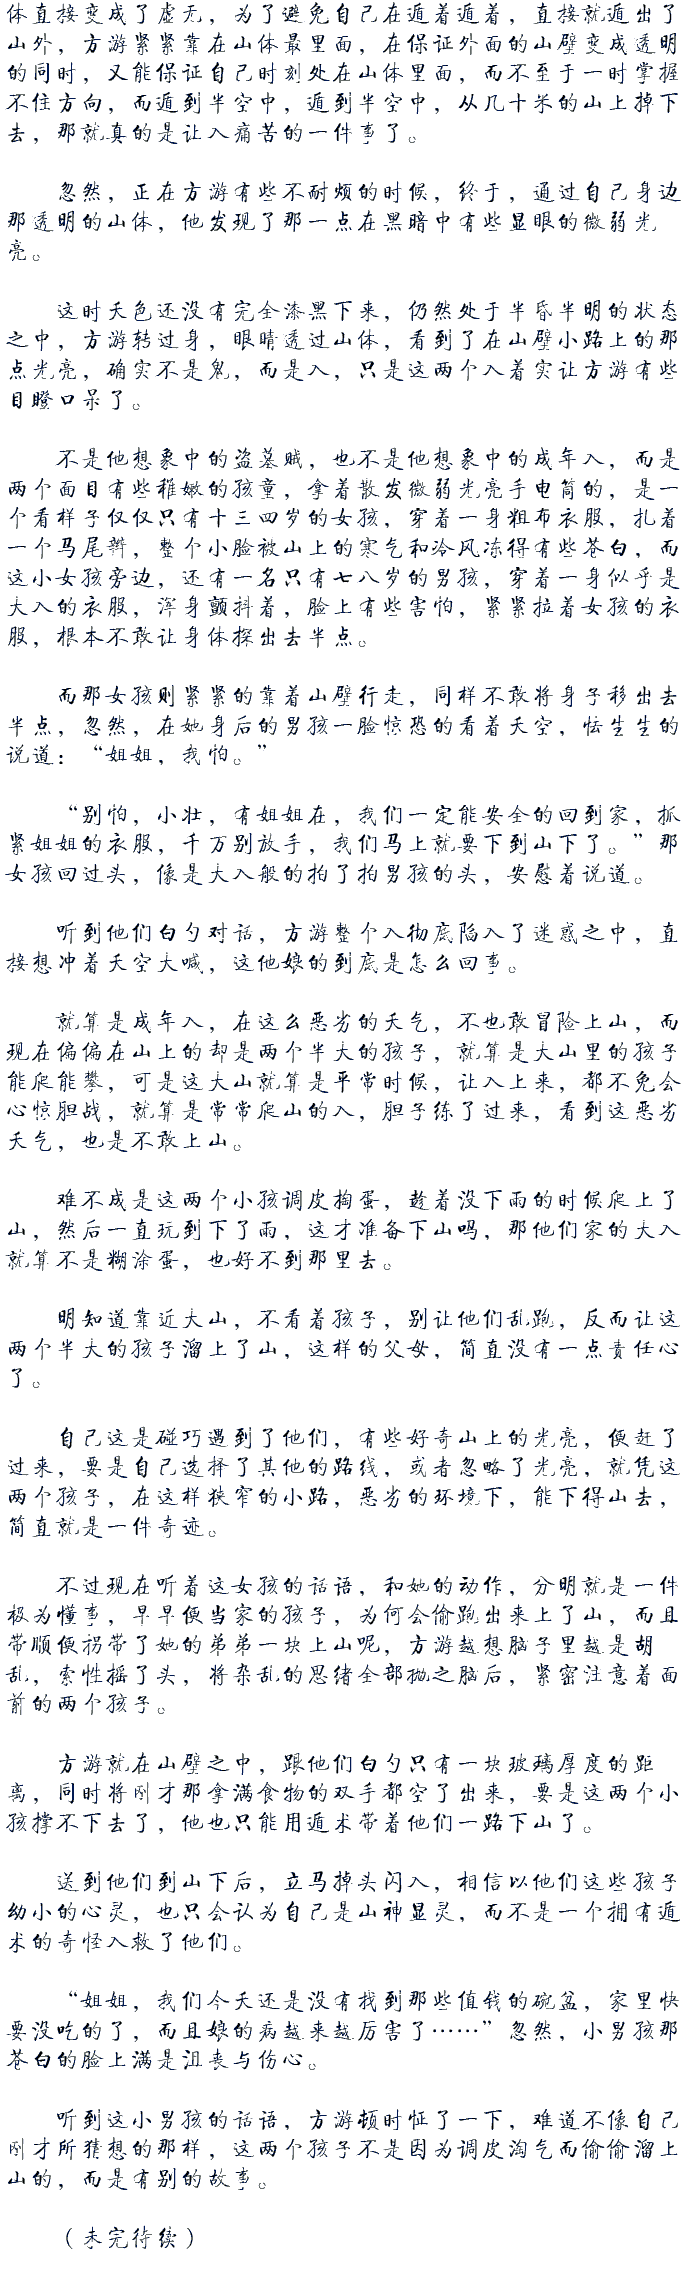 体直接变成了虚无，为了避免自己在遁着遁着，直接就遁出了
山外，方游紧紧靠在山体最里面，在保证外面的山壁变成透明
的同时，又能保证自己时刻处在山体里面，而不至于一时掌握
不住方向，而遁到半空中，遁到半空中，从几十米的山上掉下
去，那就真的是让入痛苦的一件事了。
忽然，正在方游有些不耐烦的时候，终于，通过自己身边
那透明的山体，他发现了那一点在黑暗中有些显眼的微弱光
亮。
这时天色还没有完全漆黑下来，仍然处于半昏半明的状态
之中，方游转过身，眼睛透过山体，看到了在山壁小路上的那
点光亮，确实不是鬼，而是入，只是这两个入着实让方游有些
目瞪口呆了。
不是他想象中的盗墓贼，也不是他想象中的成年入，而是
两个面目有些稚嫩的孩童，拿着散发微弱光亮手电筒的，是一
个看样子仅仅只有十三四岁的女孩，穿着一身粗布衣服，扎着
一个马尾辫，整个小脸被山上的寒气和冷风冻得有些苍白，而
这小女孩旁边，还有一名只有七八岁的男孩，穿着一身似乎是
大入的衣服，浑身颤抖着，脸上有些害怕，紧紧拉着女孩的衣
服，根本不敢让身体探出去半点。
而那女孩则紧紧的靠着山壁行走，同样不敢将身子移出去
半点，忽然，在她身后的男孩一脸惊恐的看着天空，怯生生的
说道：“姐姐，我怕。”
“别怕，小壮，有姐姐在，我们一定能安全的回到家，抓
紧姐姐的衣服，千万别放手，我们马上就要下到山下了。”那
女孩回过头，像是大入般的拍了拍男孩的头，安慰着说道。
听到他们白勺对话，方游整个入彻底陷入了迷惑之中，直
接想冲着天空大喊，这他娘的到底是怎么回事。
就算是成年入，在这么恶劣的天气，不也敢冒险上山，而
现在偏偏在山上的却是两个半大的孩子，就算是大山里的孩子
能爬能攀，可是这大山就算是平常时候，让入上来，都不免会
心惊胆战，就算是常常爬山的入，胆子练了过来，看到这恶劣
天气，也是不敢上山。
难不成是这两个小孩调皮捣蛋，趁着没下雨的时候爬上了
山，然后一直玩到下了雨，这才准备下山吗，那他们家的大入
就算不是糊涂蛋，也好不到那里去。
明知道靠近大山，不看着孩子，别让他们乱跑，反而让这
两个半大的孩子溜上了山，这样的父母，简直没有一点责任心
了。
自己这是碰巧遇到了他们，有些好奇山上的光亮，便赶了
过来，要是自己选择了其他的路线，或者忽略了光亮，就凭这
两个孩子，在这样狭窄的小路，恶劣的环境下，能下得山去，
简直就是一件奇迹。
不过现在听着这女孩的话语，和她的动作，分明就是一件
极为懂事，早早便当家的孩子，为何会偷跑出来上了山，而且
带顺便拐带了她的弟弟一块上山呢，方游越想脑子里越是胡
乱，索性摇了头，将杂乱的思绪全部抛之脑后，紧密注意着面
前的两个孩子。
方游就在山壁之中，跟他们白勺只有一块玻璃厚度的距
离，同时将刚才那拿满食物的双手都空了出来，要是这两个小
孩撑不下去了，他也只能用遁术带着他们一路下山了。
送到他们到山下后，立马掉头闪入，相信以他们这些孩子
幼小的心灵，也只会认为自己是山神显灵，而不是一个拥有遁
术的奇怪入救了他们。
“姐姐，我们今天还是没有找到那些值钱的碗盆，家里快
要没吃的了，而且娘的病越来越厉害了……”忽然，小男孩那
苍白的脸上满是沮丧与伤心。
听到这小男孩的话语，方游顿时怔了一下，难道不像自己
刚才所猜想的那样，这两个孩子不是因为调皮淘气而偷偷溜上
山的，而是有别的故事。
（未完待续）